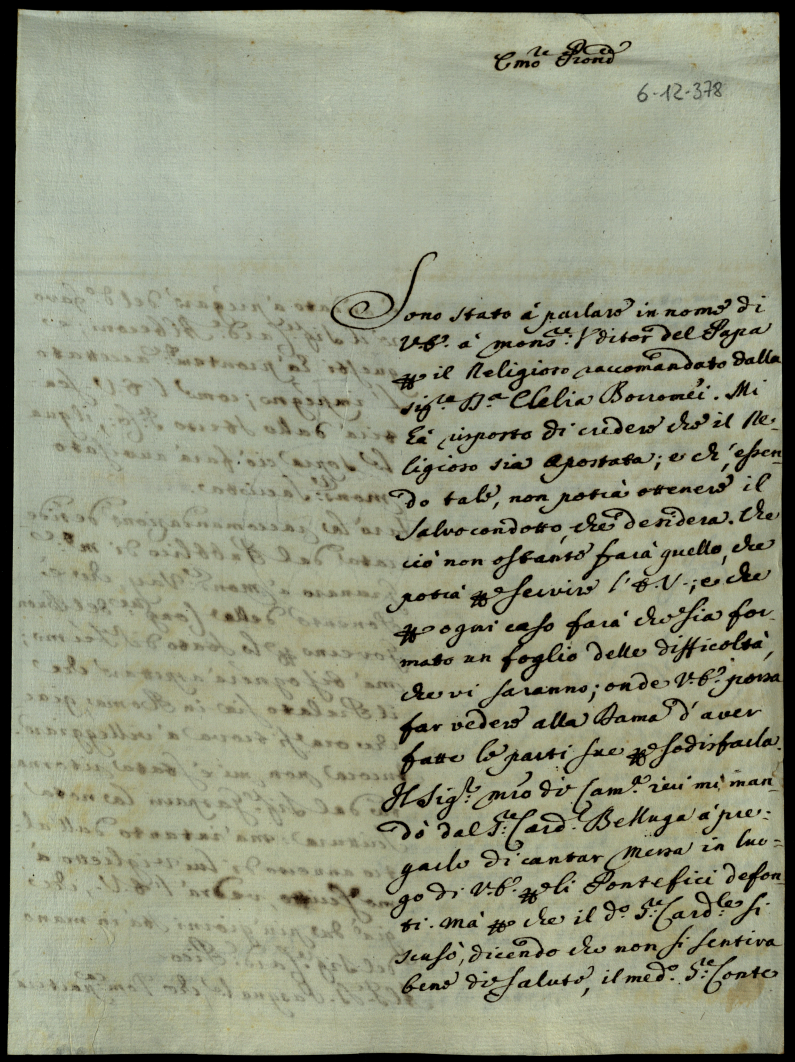 Emo. re Prone
6-12-378
Sono stato à parlare in nome di
V.E. à mons.re Vditor del Papa
il Religioso raccomandato dalla
sig.ra D.a Clelia Borromei. Mi
hà risposto di credere che il Re-
ligioso sia apostata; e ch', essen-
do tale, non potrà ottenere il
Salvocondotto, che desidera. Che
ciò non ostante farà quello, che
potrà servire l'E.V.; e che
ogni caso farà che sia for-
mato un foglio delle difficoltà,
che vi saranno; onde V.E. possa
far vedere alla Dama d'aver
fatte le parti sue sodisfarla.
Il Sig.r mro di Cam.ra ieri mi man-
dò dal S.re Card. Belluga à pre-
garlo di cantar Messa in luo-
go di V.E. li Pontefici defon-
ti. Mà che il d.o S.re Card.le si
scusò, dicendo che non si sentiva
bene di salute, il med.o S.re Conte